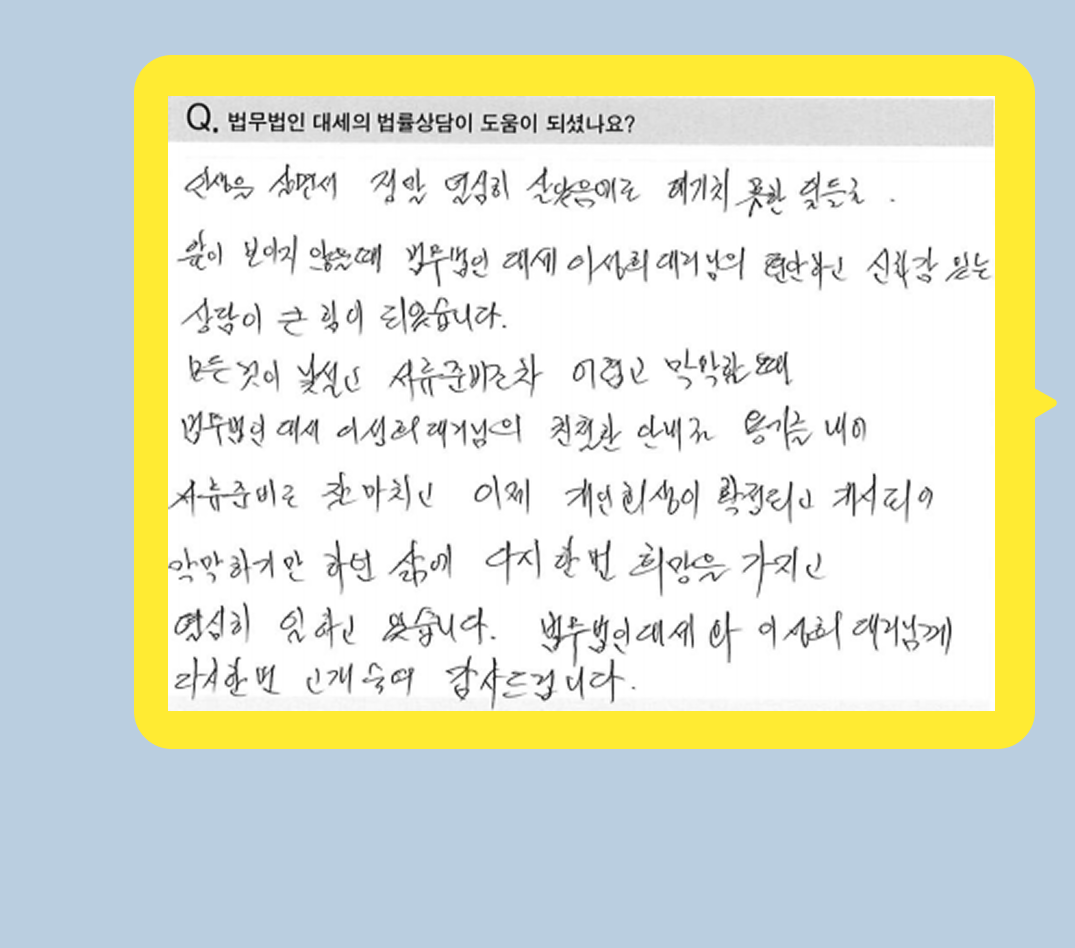 Q. 법무법인 대세의 법률상담이 도움이 되셨나요?
인생을 살면서 정말 열심히 살았음에도 예기치 못한 일들로.
앞이 보이지 않을때 법무법인 대세 이상희 대리님의 편안하고 신뢰감 있는
상담이 큰 힘이 되었습니다.
모든것이 낯설고 서류준비조차 어렵고 막막할때
법무법인 대세 이상희 대리님의 친절한 안내로 용기를 내어
서류준비도 잘 마치고 이제 개인회생이 확정되고 개시되어
막막하기만 하던 삶에 다시 한번 희망을 가지고
열심히 일 하고 있습니다. 법무법인대세 와 이상희 대리님께
다시한번 고개 숙여 감사드립니다.